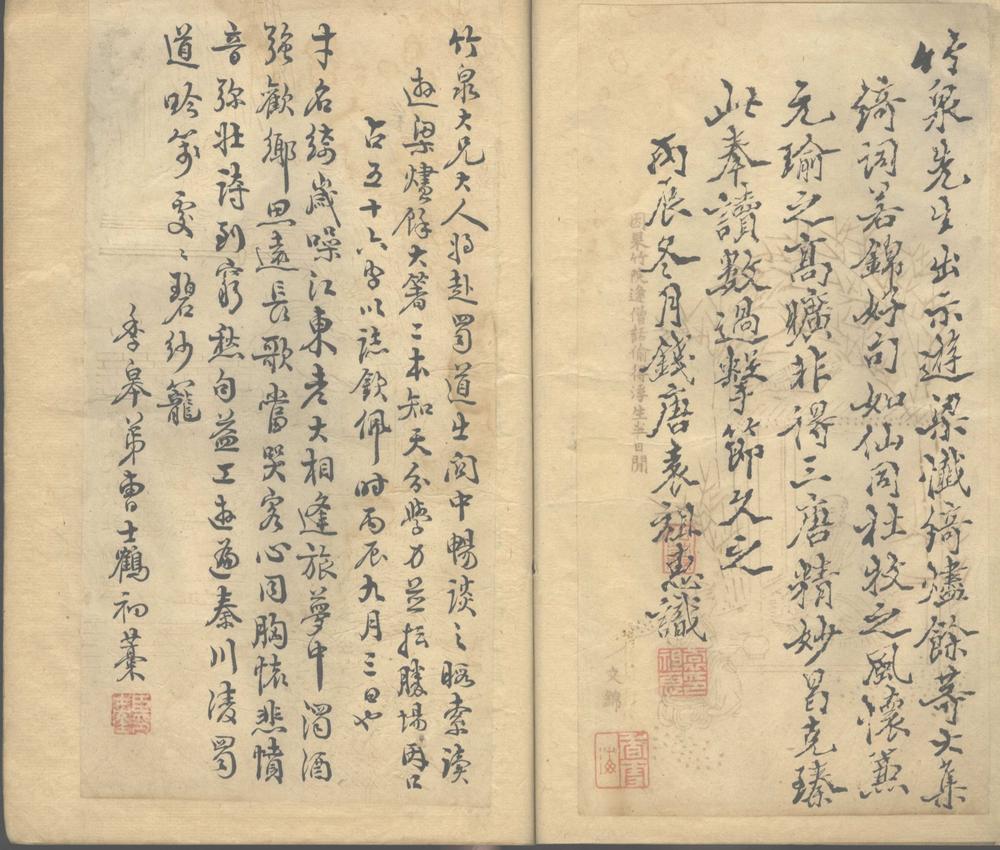 竹泉先生出示遊梁懺綺燼餘等大集
綺詞若錦好句如仙同杜牧之風懷兼
元瑜之高曠非得三唐精妙曷克臻
此奉讀數過擊節久之
丙辰冬月錢唐袁祖惠識
因果竹院逢僧話偷得浮生半日閒
文錦
竹泉大兄大人將赴蜀道出関中暢談之暇索讀
遊梁燼餘大箸二本知天分學力並擅勝場因口
占五十六字以誌欽佩時丙辰九月三日也
才名綺歲噪江東老大相逢旅夢中濁酒
強歡鄉思遠長歌當哭客心同胸懷悲憤
音弥壯詩到窮愁句益工遊遍秦川淩蜀
道吟箋受〻碧紗籠
季皋弟曹士鶴初藁